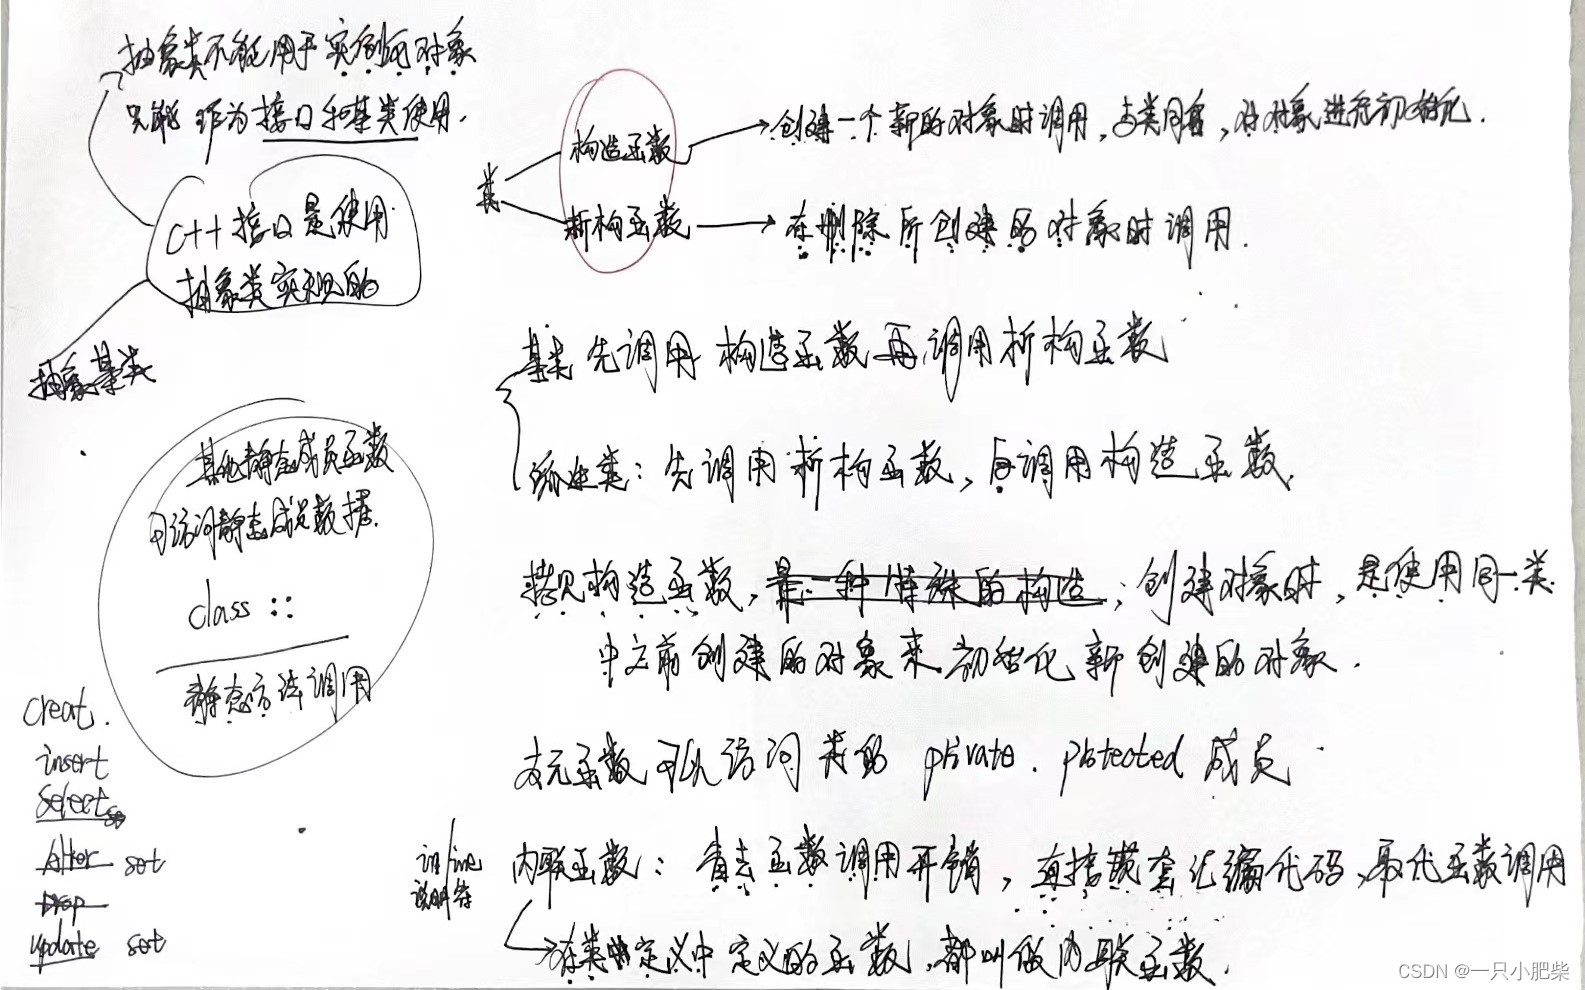 抽象类不能用于实例何对象
只能作为接口和基类使用.
C++接口是使用
抽象类实现的
抽象基类
类
构造函数
创建一个新的对象时调用,与类同名,对对象进行初始化.
析构函数
在删除所创建的对象时调用.
基类先调用构造函数再调用析构函数
派生类:先调用析构函数,后调用构造函数.
其他静态成员函数
可访问静态成员数据.
class ::
静态方法调用
拷贝构造函数,是一种特殊的构造;创建对象时,是使用同一类
中之前创建的对象来初始化新创建的对象.
友元函数可以访问类的 private. protected 成员
creat.
insert
select
Alter set
Drop
update set
inline
说明符
内联函数:省去函数调用开销,直接嵌套汇编代码,取代函数调用
在类中定义中定义的函数,都叫做内联函数.
CSDN @一只小肥柴